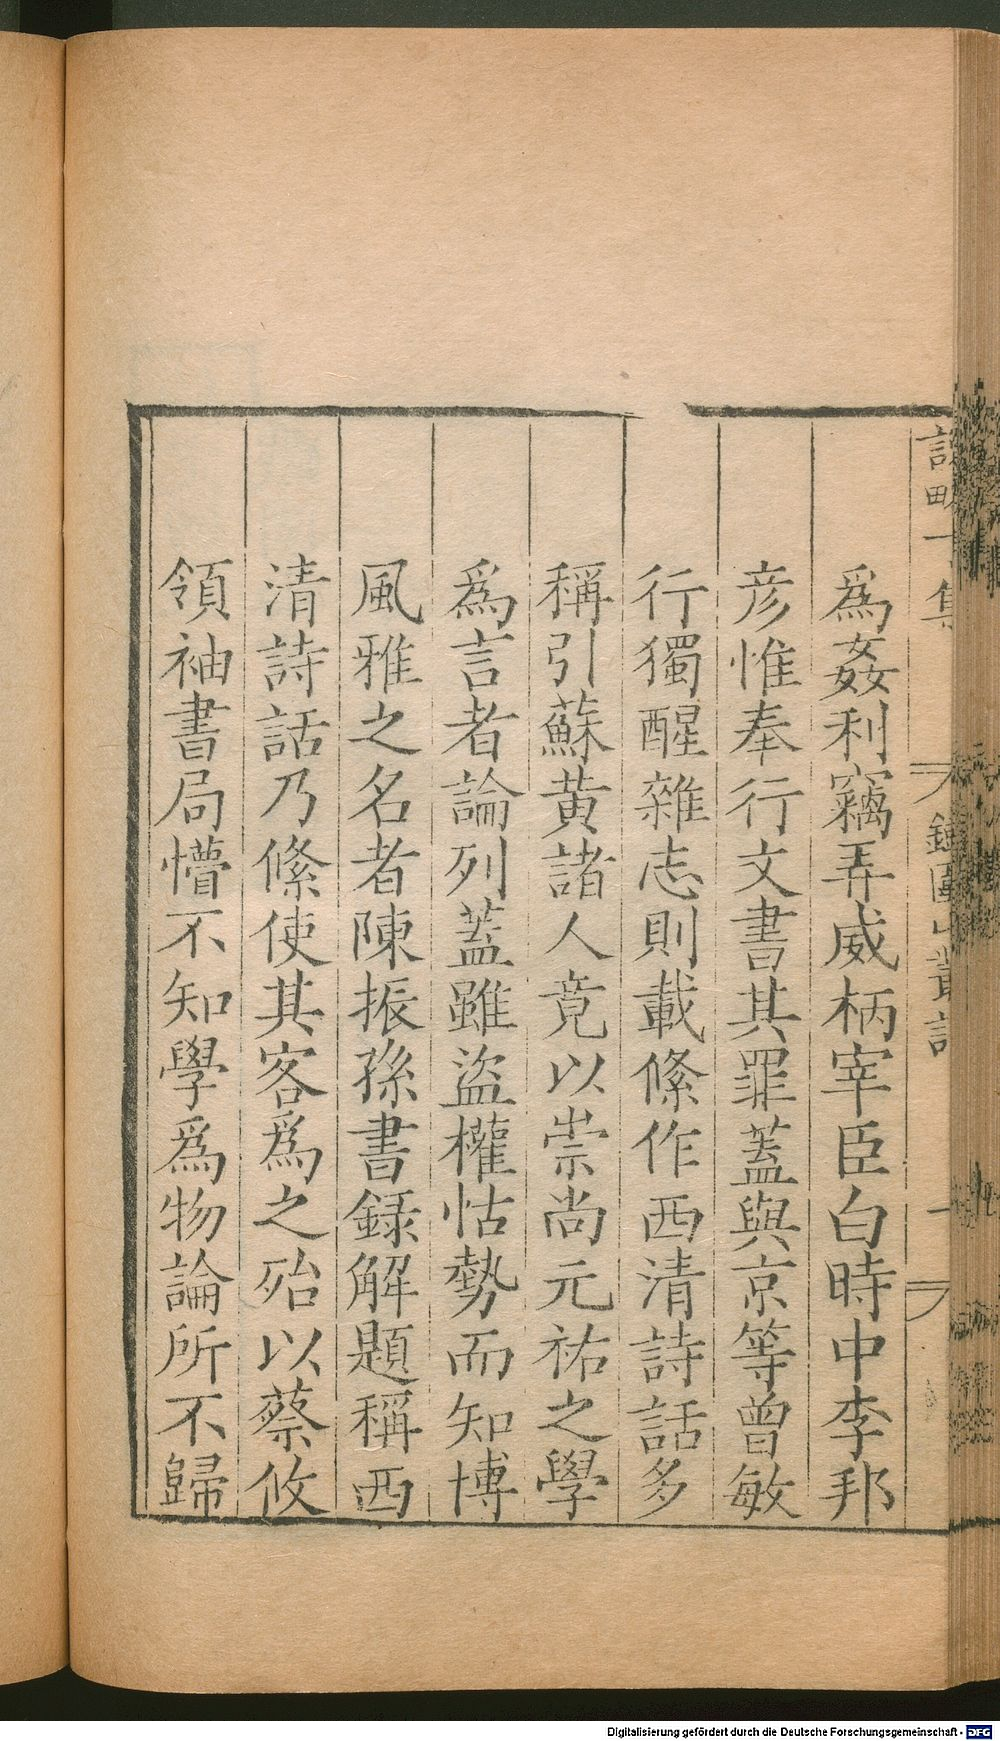 為姦利竊弄威柄宰臣白時中李邦
彦惟奉行文書其罪蓋與京等曾敏
行獨醒雜志則載絛作西清詩話多
稱引蘇黄諸人竟以崇尚元祐之學
為言者論列蓋雖盜權怙勢而知博
風雅之名者陳振孫書録解題稱西
清詩話乃絛使其客為之殆以蔡攸
領袖書局懵不知學為物論所不歸
Digitalisierung gefördert durch die Deutsche Forschungsgemeinschaft - DFG